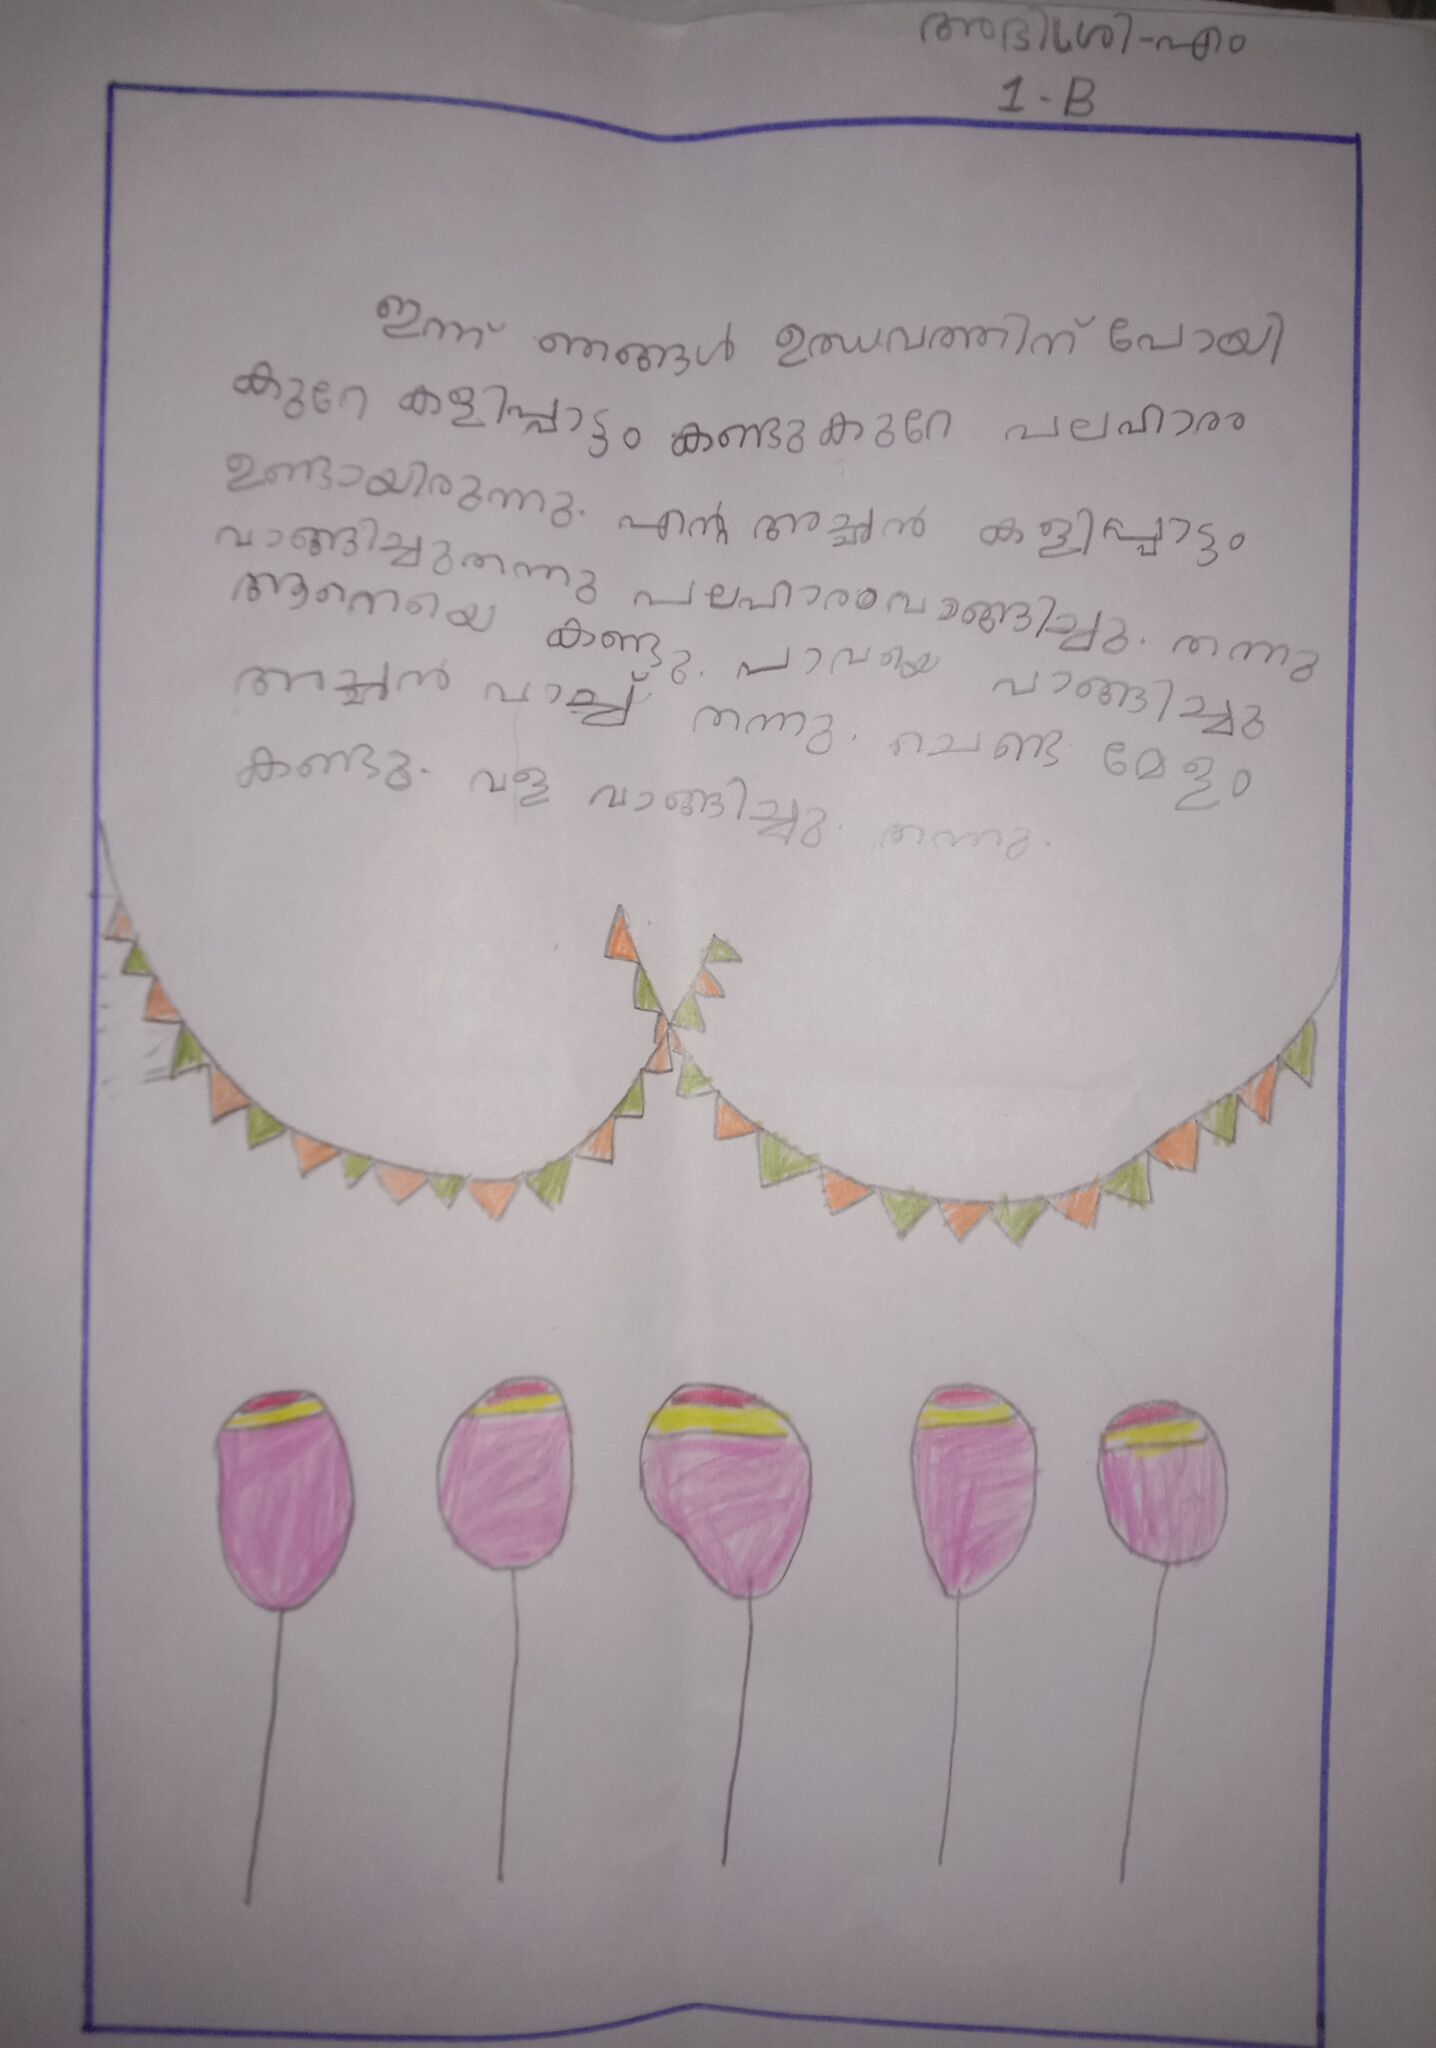 1-B
ഇന്ന് ഞങ്ങൾ ഉത്സവത്തിന് പോയി
കുറേ കളിപ്പാട്ടം കണ്ടു കുറേ പലഹാരം
ഉണ്ടായിരുന്നു. എന്റെ അച്ഛൻ കളിപ്പാട്ടം
വാങ്ങിച്ചുതന്നു പലഹാരംവാങ്ങിച്ചു. തന്നു
ആനെയെ കണ്ടു. പാവയെ വാങ്ങിച്ചു
അച്ഛൻ വാച്ച് തന്നു. ചെണ്ട മേളം
കണ്ടു. വള വാങ്ങിച്ചു. തന്നു.